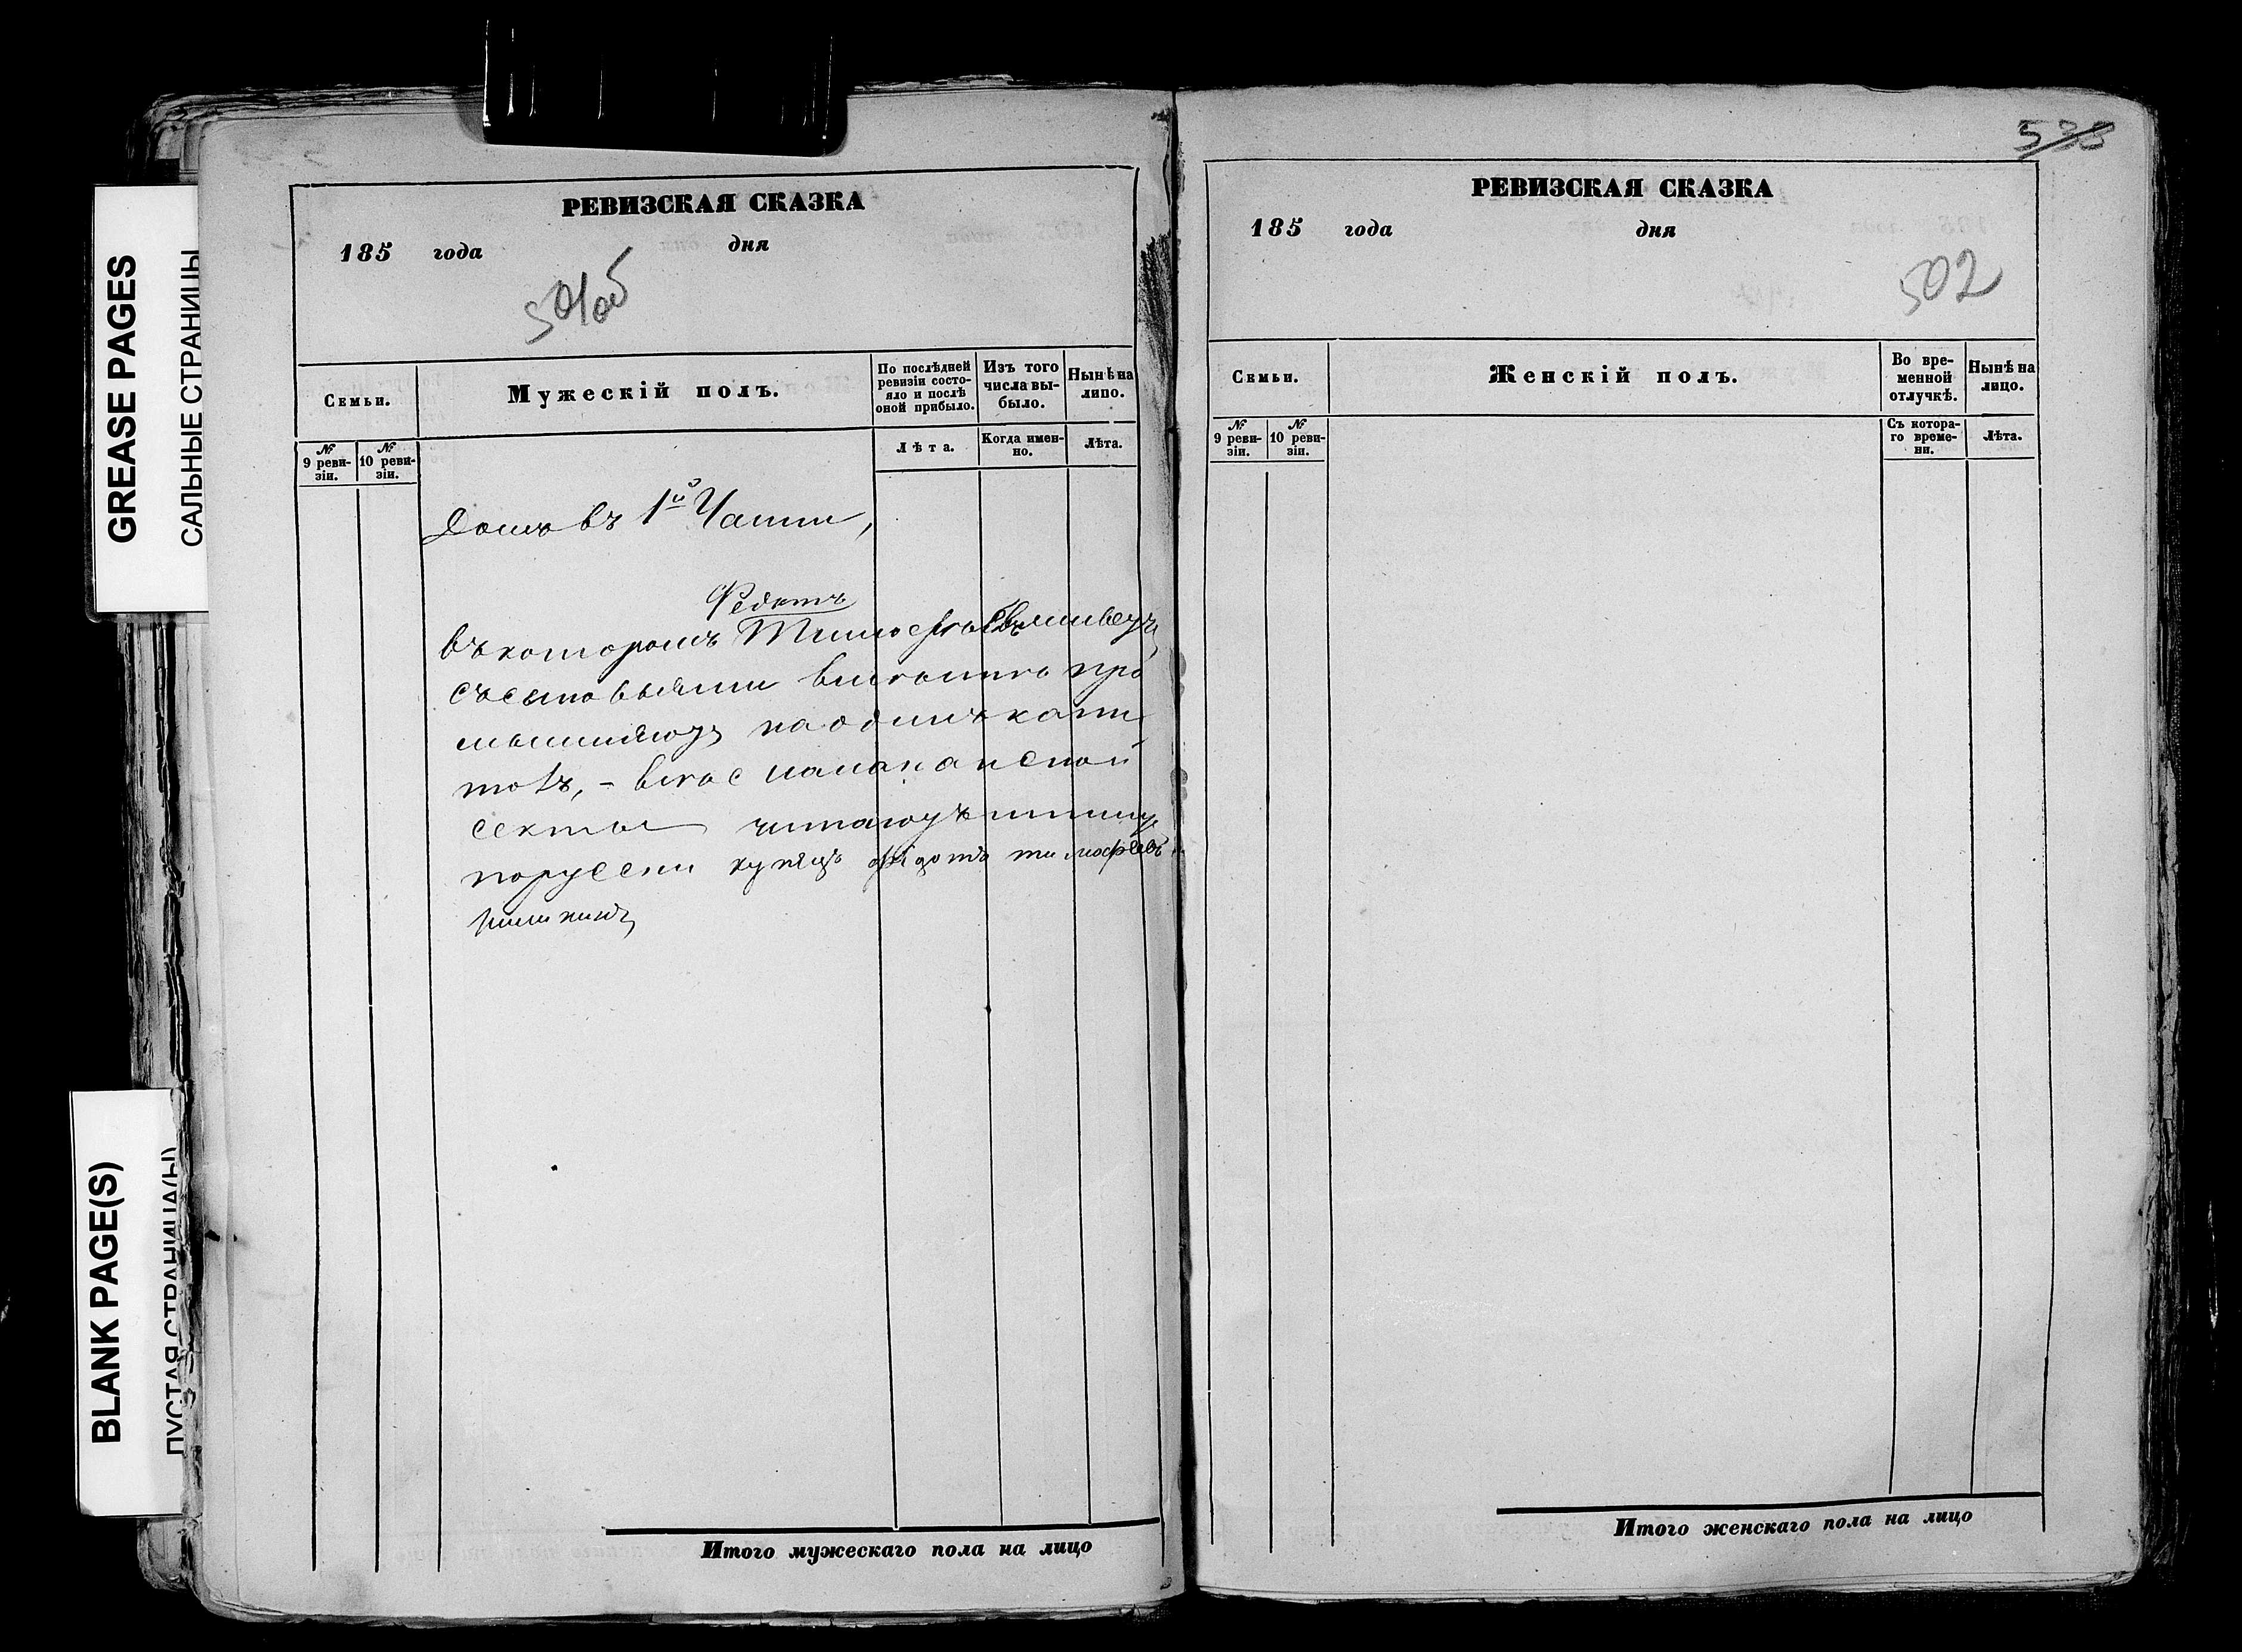 GREASE PAGES
САЛЬНЫЕ СТРАНИЦЫ
BLANK PAGE(S)
ПУСТАЯ СТРАНИЦА(Ы)
РЕВИЗСКАЯ СКАЗКА
185 года дня
501об
Семьи.
Мужескій полъ.
По послѣдней ревизіи состояло и послѣ оной прибыло.
Изъ того числа выбыло.
Нынѣ на лицо.
№ 9 ревизіи.
№ 10 ревизіи.
Лѣта.
Когда именно.
Лѣта.
домъ въ 1й Части,
Федотъ
въ которомъ живетъ
съ сыновьями вместе про
мышляютъ на одинъ капи
талъ, – все молоканской
секты читаютъ и пишутъ
порусски купецъ федотъ тимофеевъ
Итого мужескаго пола на лицо
533
РЕВИЗСКАЯ СКАЗКА
185 года дня
502
Семьи.
Женскій полъ.
Во временной отлучкѣ.
Нынѣ на лицо.
№ 9 ревизіи.
№ 10 ревизіи.
Съ котораго времени.
Лѣта.
Итого женскаго пола на лицо